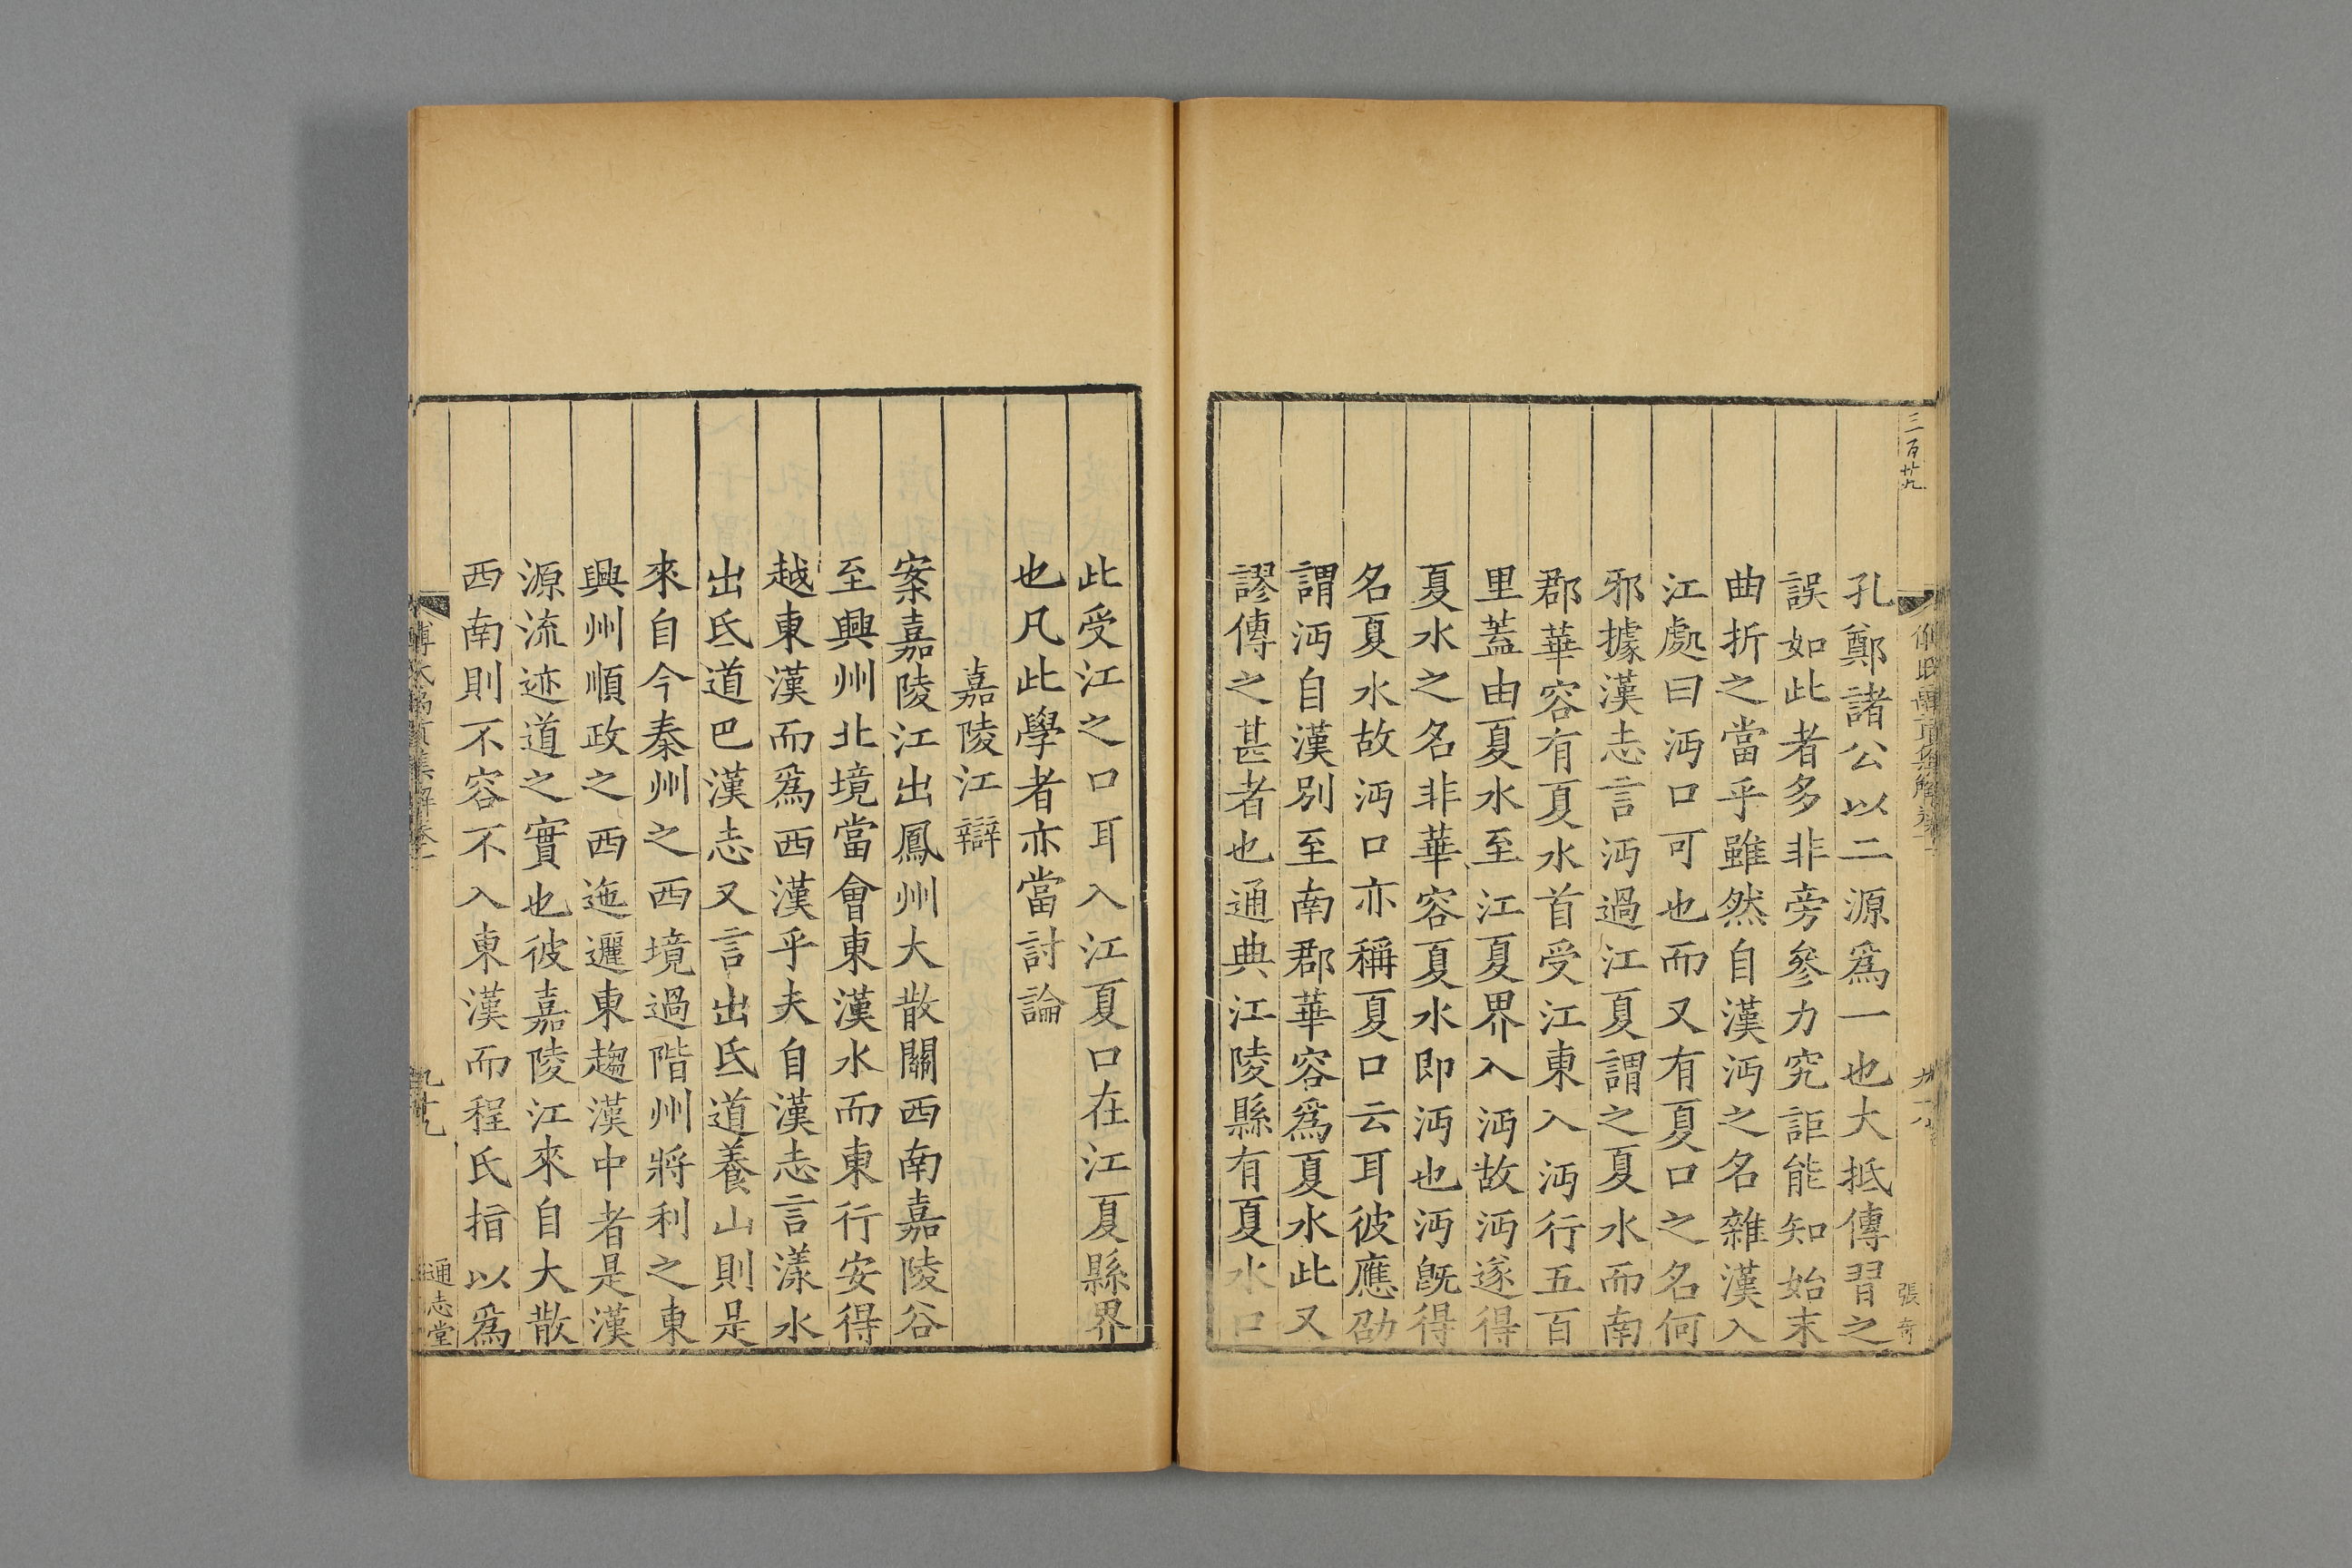 三百廿九
孔鄭諸公以二源爲一也大抵傳習之
誤如此者多非旁參力究詎能知始末
曲折之當乎雖然自漢沔之名雜漢入
江處曰沔口可也而又有夏口之名何
邪據漢志言沔過江夏謂之夏水而南
郡華容有夏水首受江東入沔行五百
里蓋由夏水至江夏界入沔故沔遂得
夏水之名非華容夏水即沔也沔旣得
名夏水故沔口亦稱夏口云耳彼應劭
謂沔自漢別至南郡華容爲夏水此又
謬傳之甚者也通典江陵縣有夏水口
張奇
此受江之口耳入江夏口在江夏縣界
也凡此學者亦當討論
嘉陵江辯
案嘉陵江出鳳州大散關西南嘉陵谷
至興州北境當會東漢水而東行安得
越東漢而爲西漢乎夫自漢志言漾水
出氐道巴漢志又言出氐道養山則是
來自今秦州之西境過階州將利之東
興州順政之西迤邐東趨漢中者是漢
源流迹道之實也彼嘉陵江來自大散
西南則不容不入東漢而程氏指以爲
傅氏禹貢集解卷一
九十九
通志堂